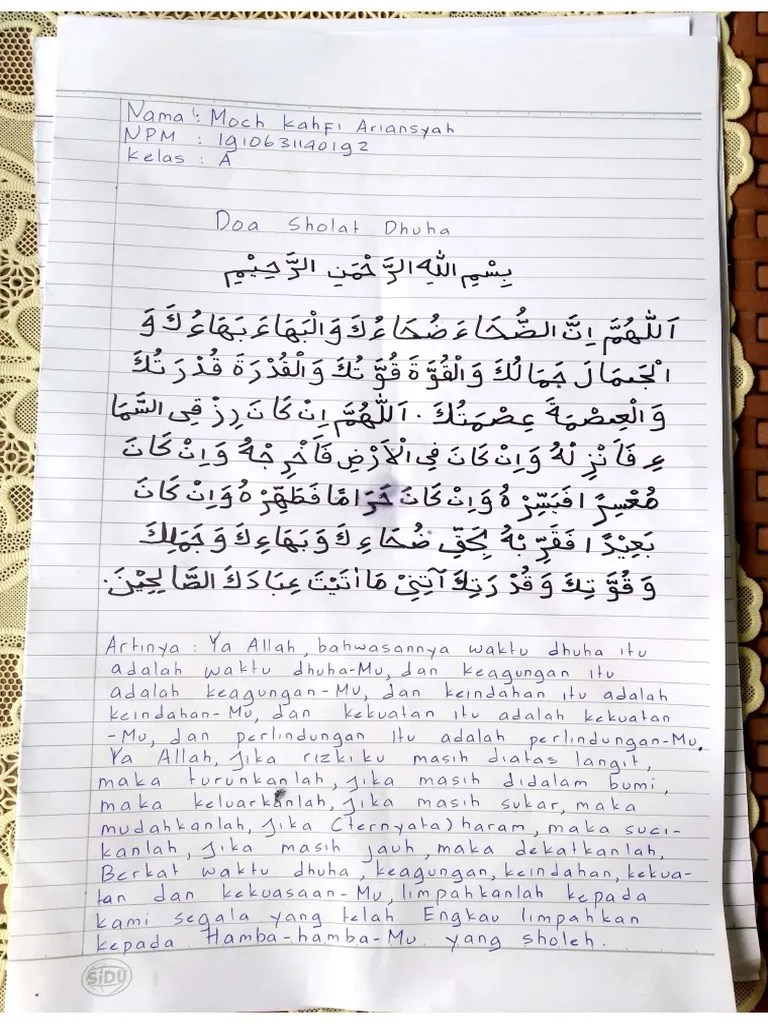 Nama : Moch Kahfi Ariansyah
NPM : 1910631140192
Kelas : A
Doa Sholat Dhuha
بِسْمِ اللهِ الرَّحْمَنِ الرَّحِيْمِ
اَللّٰهُمَّ اِنَّ الضُّحَاءَ ضُحَاءُكَ وَالْبَهَاءَ بَهَاءُكَ وَ
الْجَمَالَ جَمَالُكَ وَالْقُوَّةَ قُوَّتُكَ وَالْقُدْرَةَ قُدْرَتُكَ
وَالْعِصْمَةَ عِصْمَتُكَ. اَللّٰهُمَّ اِنْ كَانَ رِزْقِى السَّمَا
ءِ فَاَنْزِلْهُ وَاِنْ كَانَ فِى الْاَرْضِ فَاَخْرِجْهُ وَاِنْ كَانَ
مُعْسِرًا فَيَسِّرْهُ وَاِنْ كَانَ حَرَامًا فَطَهِّرْهُ وَاِنْ كَانَ
بَعِيْدًا فَقَرِّبْهُ بِحَقِّ ضُحَاءِكَ وَبَهَاءِكَ وَجَمَالِكَ
وَقُوَّتِكَ وَقُدْرَتِكَ آتِنِيْ مَا اٰتَيْتَ عِبَادَكَ الصَّالِحِيْنَ.
Artinya : Ya Allah, bahwasannya waktu dhuha itu
adalah waktu dhuha-Mu, dan keagungan itu
adalah keagungan-Mu, dan keindahan itu adalah
keindahan-Mu, dan kekuatan itu adalah kekuatan
-Mu, dan perlindungan itu adalah perlindungan-Mu.
Ya Allah, jika rizkiku masih diatas langit,
maka turunkanlah, jika masih didalam bumi,
maka keluarkanlah, jika masih sukar, maka
mudahkanlah, jika (ternyata) haram, maka suci-
kanlah, jika masih jauh, maka dekatkanlah,
Berkat waktu dhuha, keagungan, keindahan, kekua-
tan dan kekuasaan-Mu, limpahkanlah kepada
kami segala yang telah Engkau limpahkan
kepada Hamba-hamba-Mu yang sholeh.
SiDU